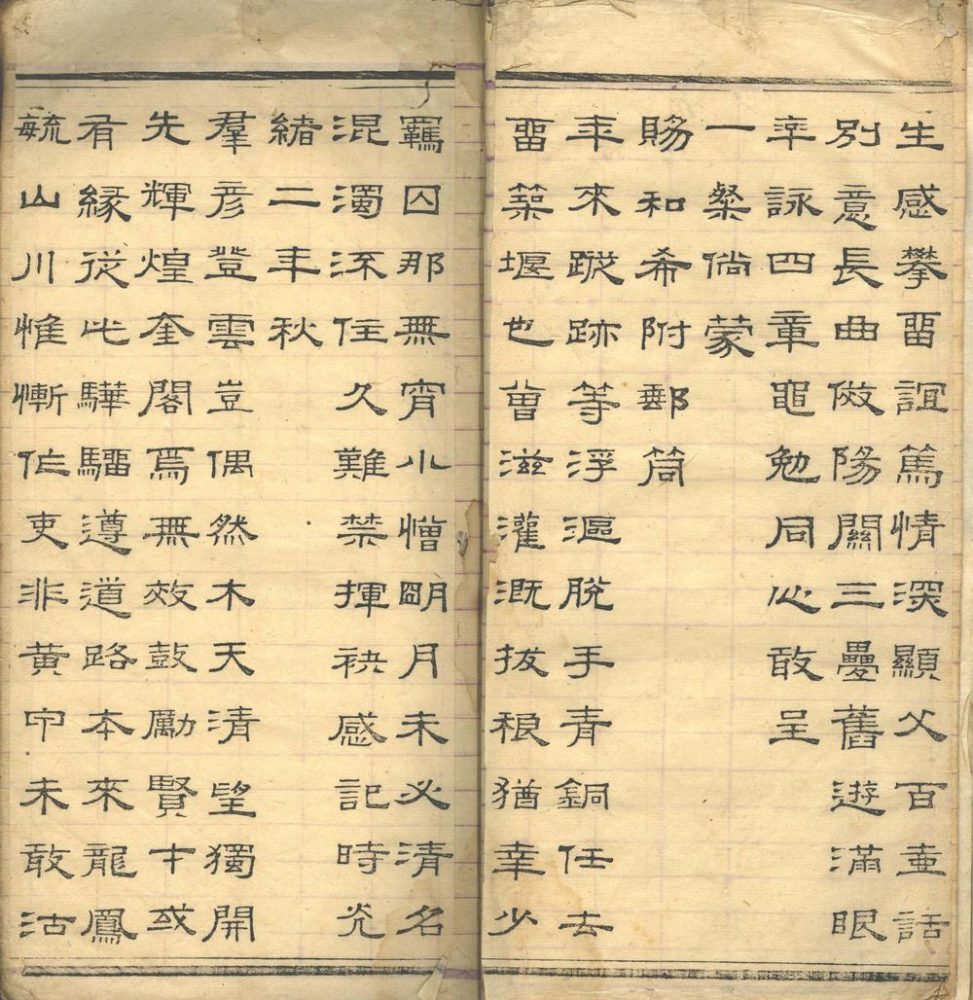 生感攀畱誼篤情深顯父百壺話
別意長曲倣陽關三疊舊遊滿眼
卒詠四章黽勉同心敢呈
一粲倘蒙
賜和希附郵筒
年來蹤跡等浮漚脫手青銅任去
畱築堰也曾滋灌溉拔稂猶幸少
羈囚那無宵小憎朙月未必清名
混濁流住久難禁揮袂感記時光
緒二年秋
羣彥登雲豈偶然木天清望獨開
先輝煌奎閣焉無效鼓勵賢才或
有緣從此驊騮遵道路本來龍鳳
毓山川惟慚作吏非黃中未敢沽